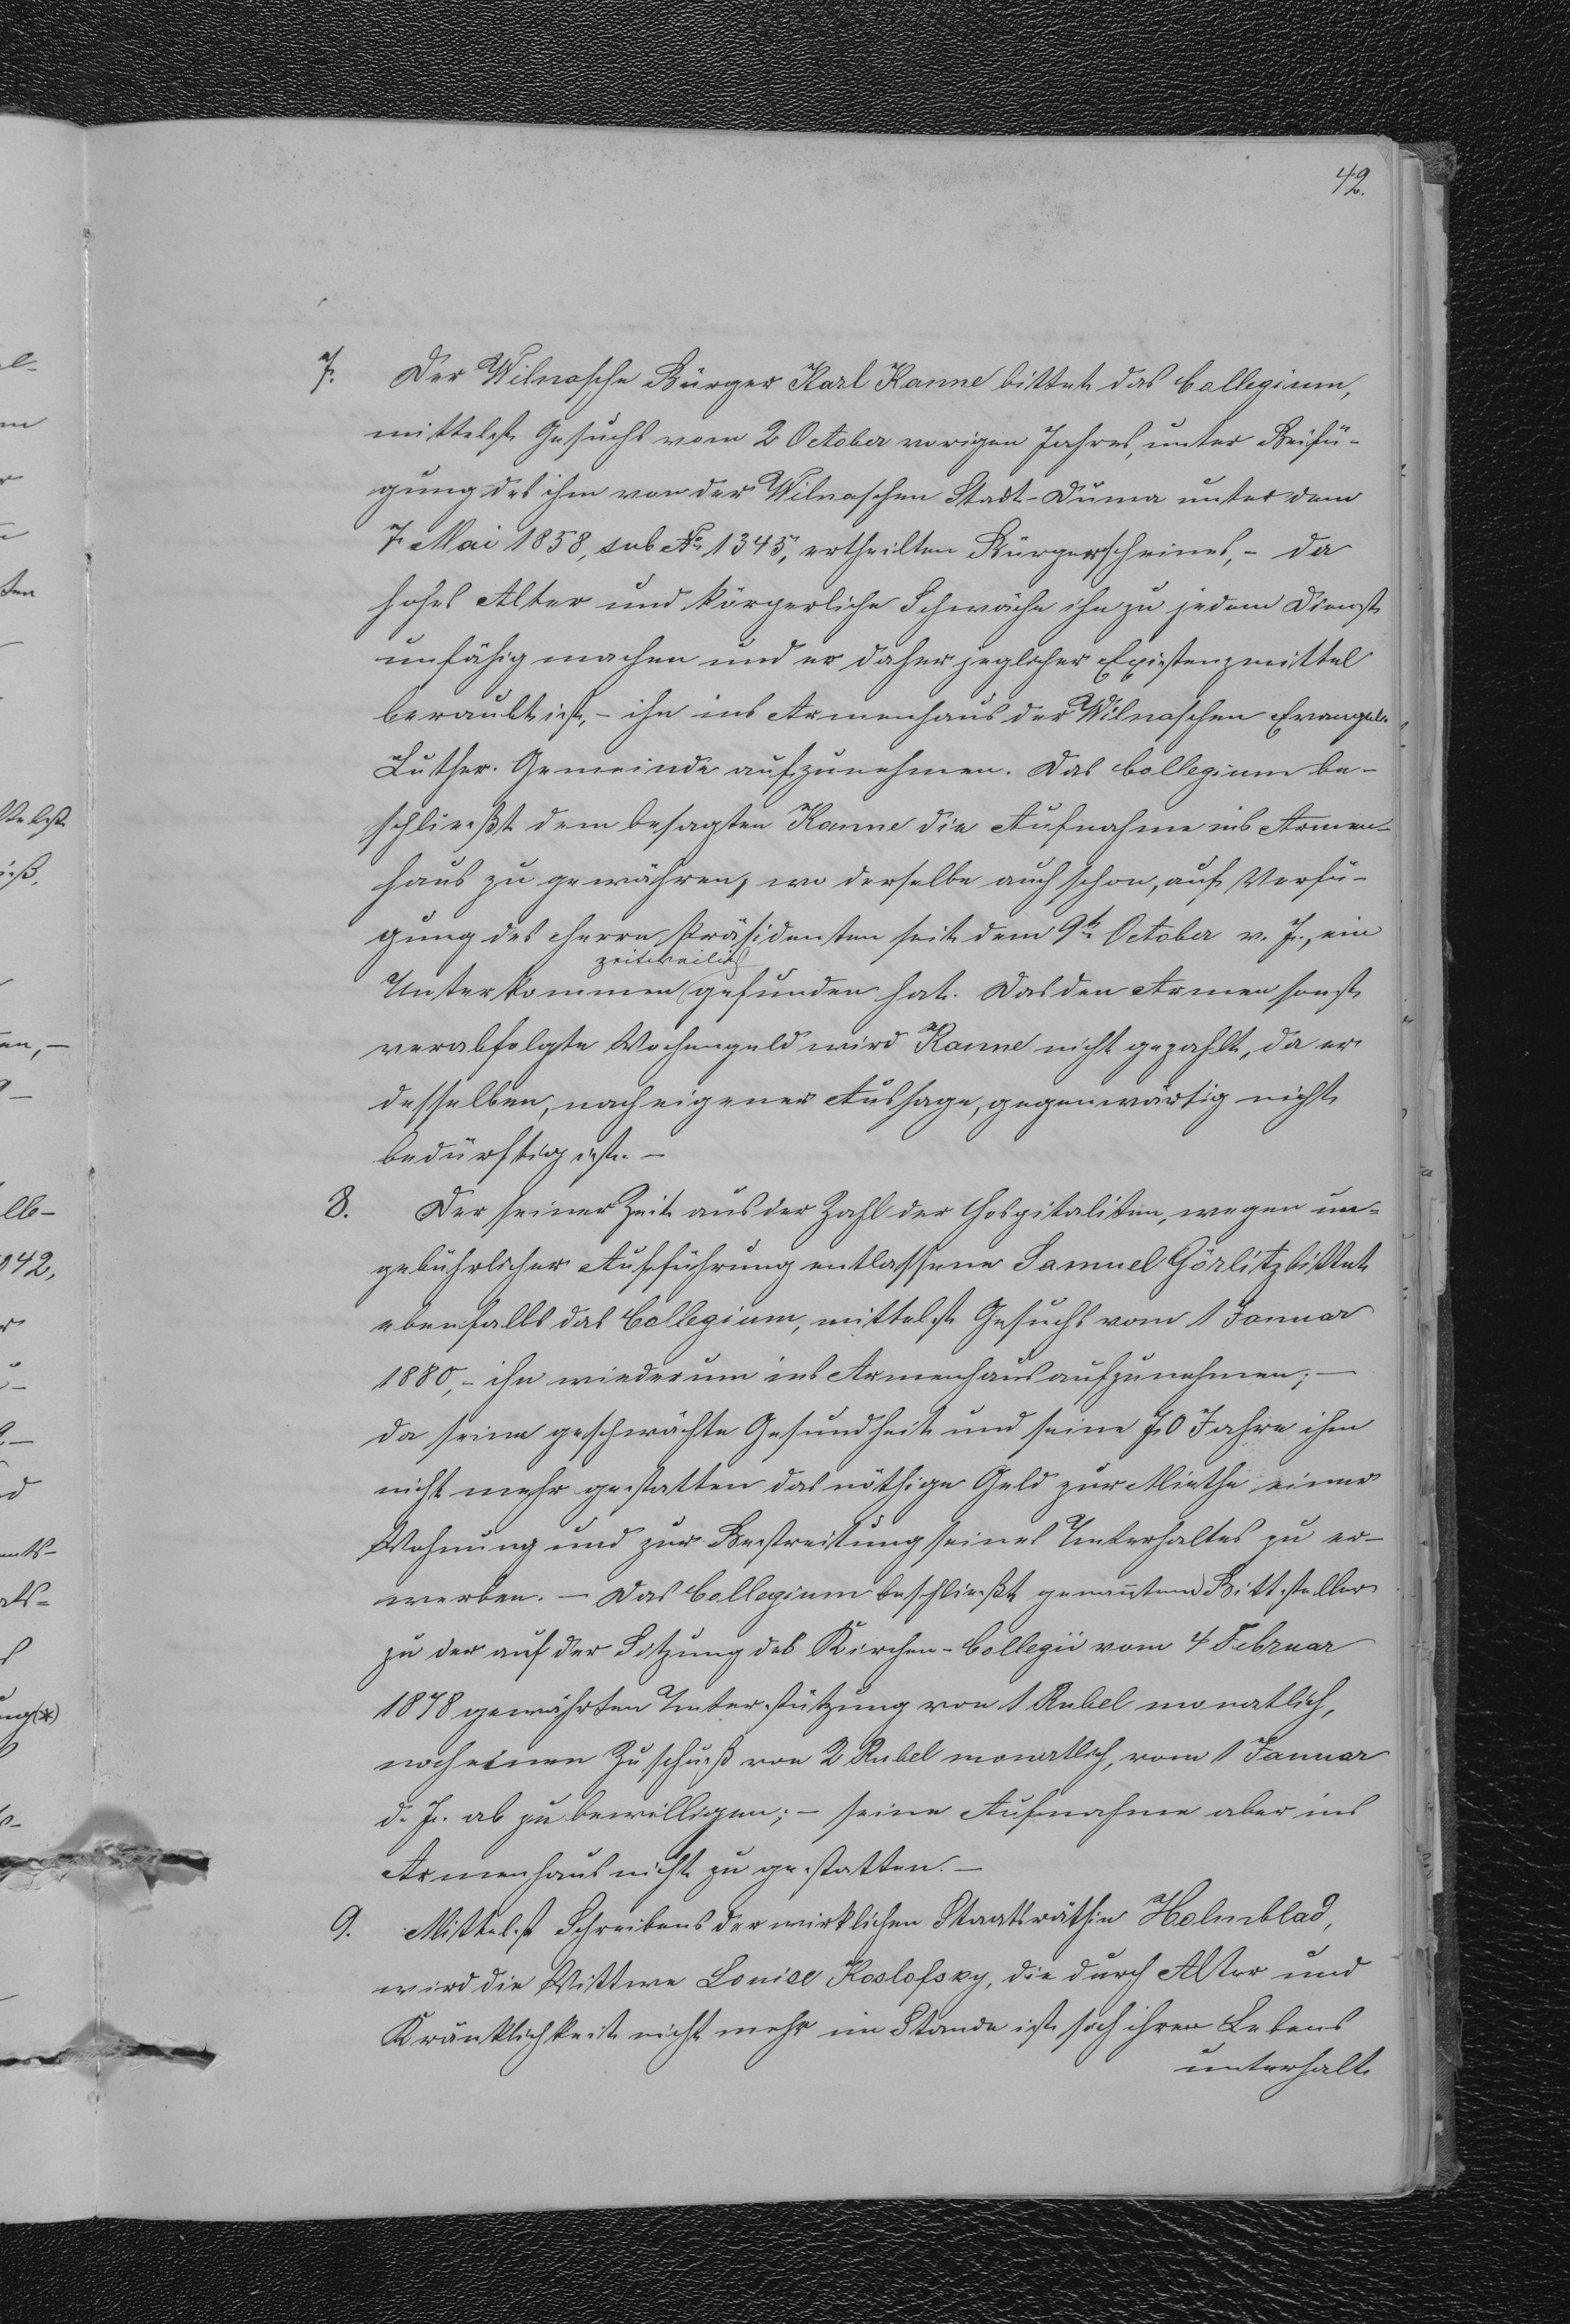 42.
7. Der Wilnasche Bürger Karl Kanne bittet das Collegium,
mittelst Gesuchs vom 2 October vorigen Jahres, unter Beifü-
gung des ihm von der Wilnaschen Stadt-Duma unter dem
7 Mai 1858, sub № 1345, ertheilten Bürgerscheines, - da
hohes Alter und körperliche Schwäche ihn zu jedem Dienst
unfähig machen und er daher jeglicher Existenzmittel
beraubt ist, - ihn ins Armenhaus der Wilnaschen Evangel.
Luther. Gemeinde aufzunehmen. Das Collegium be-
schließt dem besagten Kanne die Aufnahme ins Armen-
haus zu gewähren, wo derselbe auch schon, auf Verfü-
gung des Herrn Präsidenten seit dem 9ten October v. J., ein
zeitweilig
Unterkommen gefunden hat. Das den Armen sonst
verabfolgte Wochengeld wird Kanne nicht gezahlt, da er
desselben, nach eigener Aussage, gegenwärtig nicht
bedürftig ist. —
8. Der seiner Zeit aus der Zahl der Hospitaliten, wegen un-
gebührlicher Aufführung entlassene Samuel Görlitz bittet
ebenfalls das Collegium, mittelst Gesuchs vom 1 Januar
1880, - ihn wiederum ins Armenhaus aufzunehmen; —
da seine geschwächte Gesundheit und seine 70 Jahre ihm
nicht mehr gestatten das nöthige Geld zur Miethe einer
Wohnung und zur Bestreitung seines Unterhaltes zu er-
werben. — Das Collegium beschließt genanntem Bittsteller
zu der auf der Sitzung des Kirchen-Collegii vom 4 Februar
1878 gewährten Unterstützung von 1 Rubel monatlich,
noch einen Zuschuß von 2 Rubel monatlich, vom 1 Januar
d. J. ab zu bewilligen; - seine Aufnahme aber ins
Armenhaus nicht zu gestatten. —
9. Mittelst Schreibens der wirklichen Staatsräthin Holmblad,
wird die Wittwe Louise Koslofsky, die durch Alter und
Kränklichkeit nicht mehr im Stande ist sich ihren Lebens
unterhalt